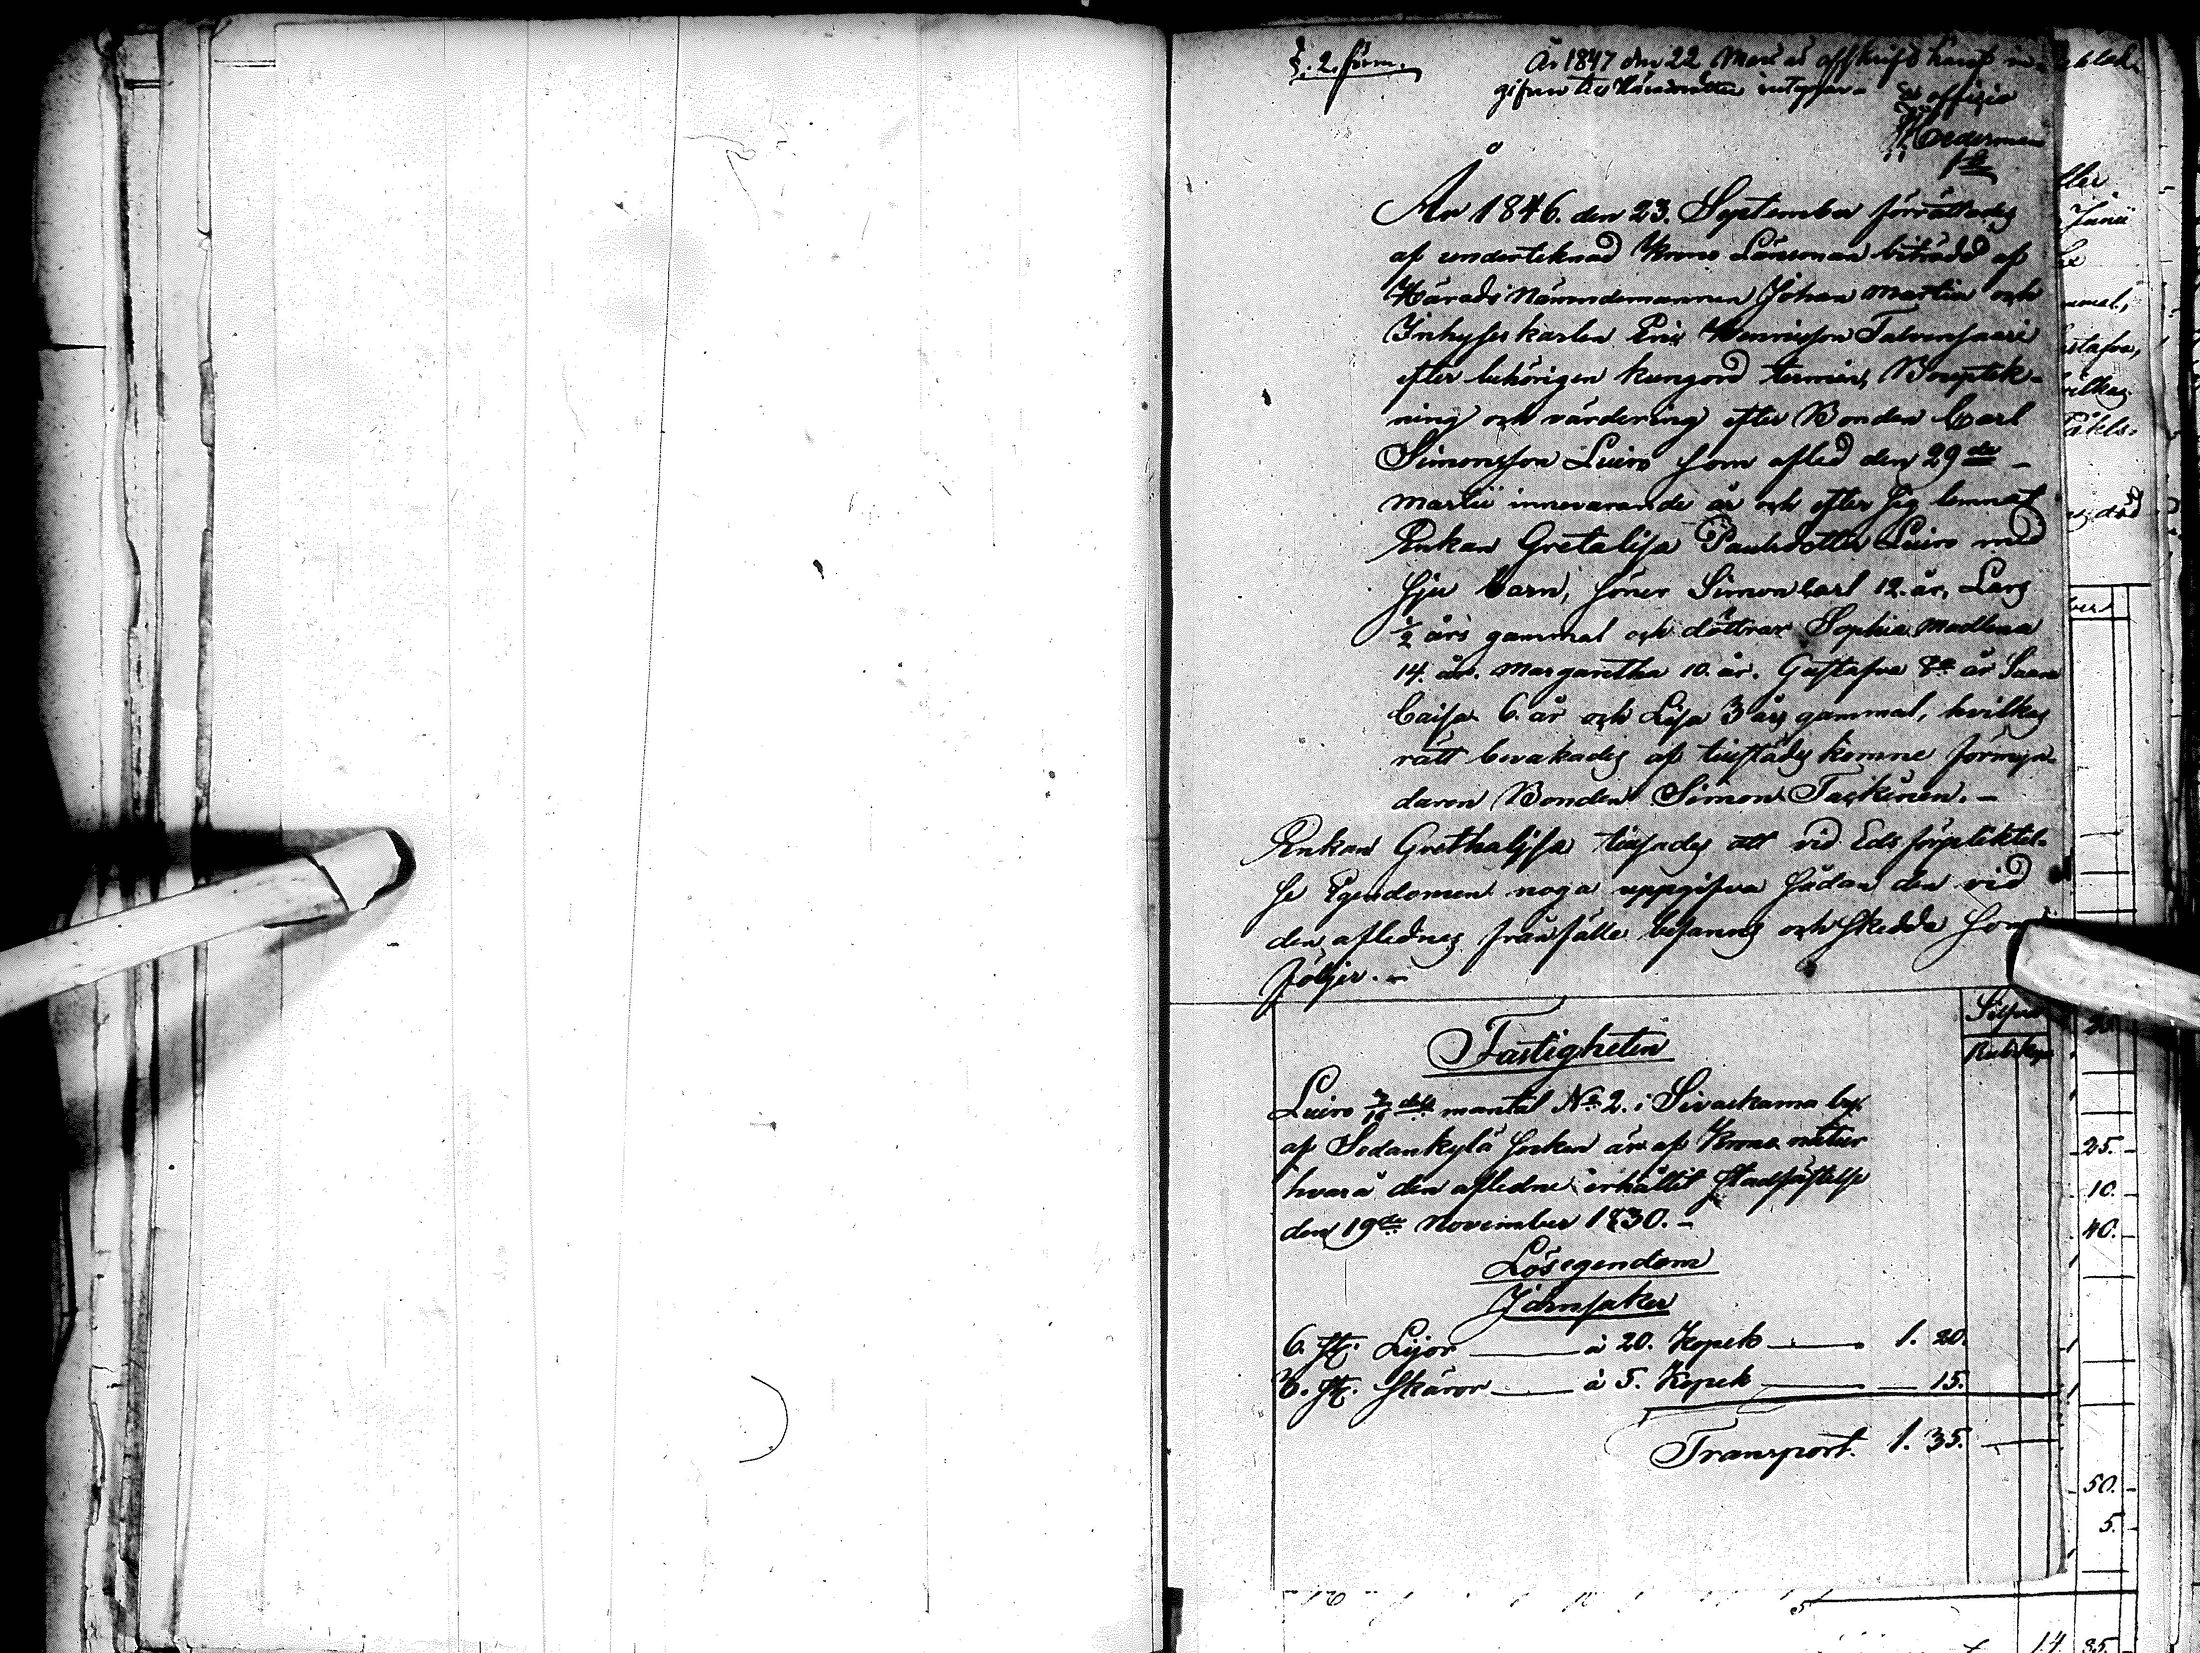 §. 2. förm.
År 1847 den 22 Mars är afskrift häraf in-
gifven till Häradsrätten intygar
Ex officio
År 1846. den 23. September förrättades
af underteknad Krono Länsman biträdd af
Härads Nämndemannen Johan Martin och
Inhyses karlen Eric Henricsson Talvensaari
efter behörigen kungjord termin, Bouptek-
ning och värdering efter Bonden Carl
Simonsson Luiro som afled den 29de
Martii innevarande år och efter sig lemnat
Enkan Gretalisa Paulsdotter Luiro med
sju barn, söner Simon Carl 12. år, Lars
½ års gammal och döttrar Sophia Madlena
14. år. Margaretha 10. år. Gustafva 8. år Saara
Caisa 6. år och Lisa 3 års gammal, hvilkas
rätt bevakades af tillstädes komne förmyn-
daren Bonden Simon Taskinen. -
Enkan Grethalissa tillsades att vid Eds förpliktel-
se Egendomen noga uppgifva sådan den vid
den aflednes frånfälle befanns och skedde som
följer. -
Silfver
Rub. Kop.
Fastigheten
Luiro mantal No 2. i Sivackama by
af Sodankylä socken är af Krono natur
hvarå den aflidne erhållit stadfästelse
den 19de November 1830. -
Lösegendom
Jernsaker
6. st. Lijor à 20. Kopek 1. 20.
3. st. skäror à 5. Kopek 15.
Transport. 1. 35.
25.
10.
40.
50.
5.
14 35